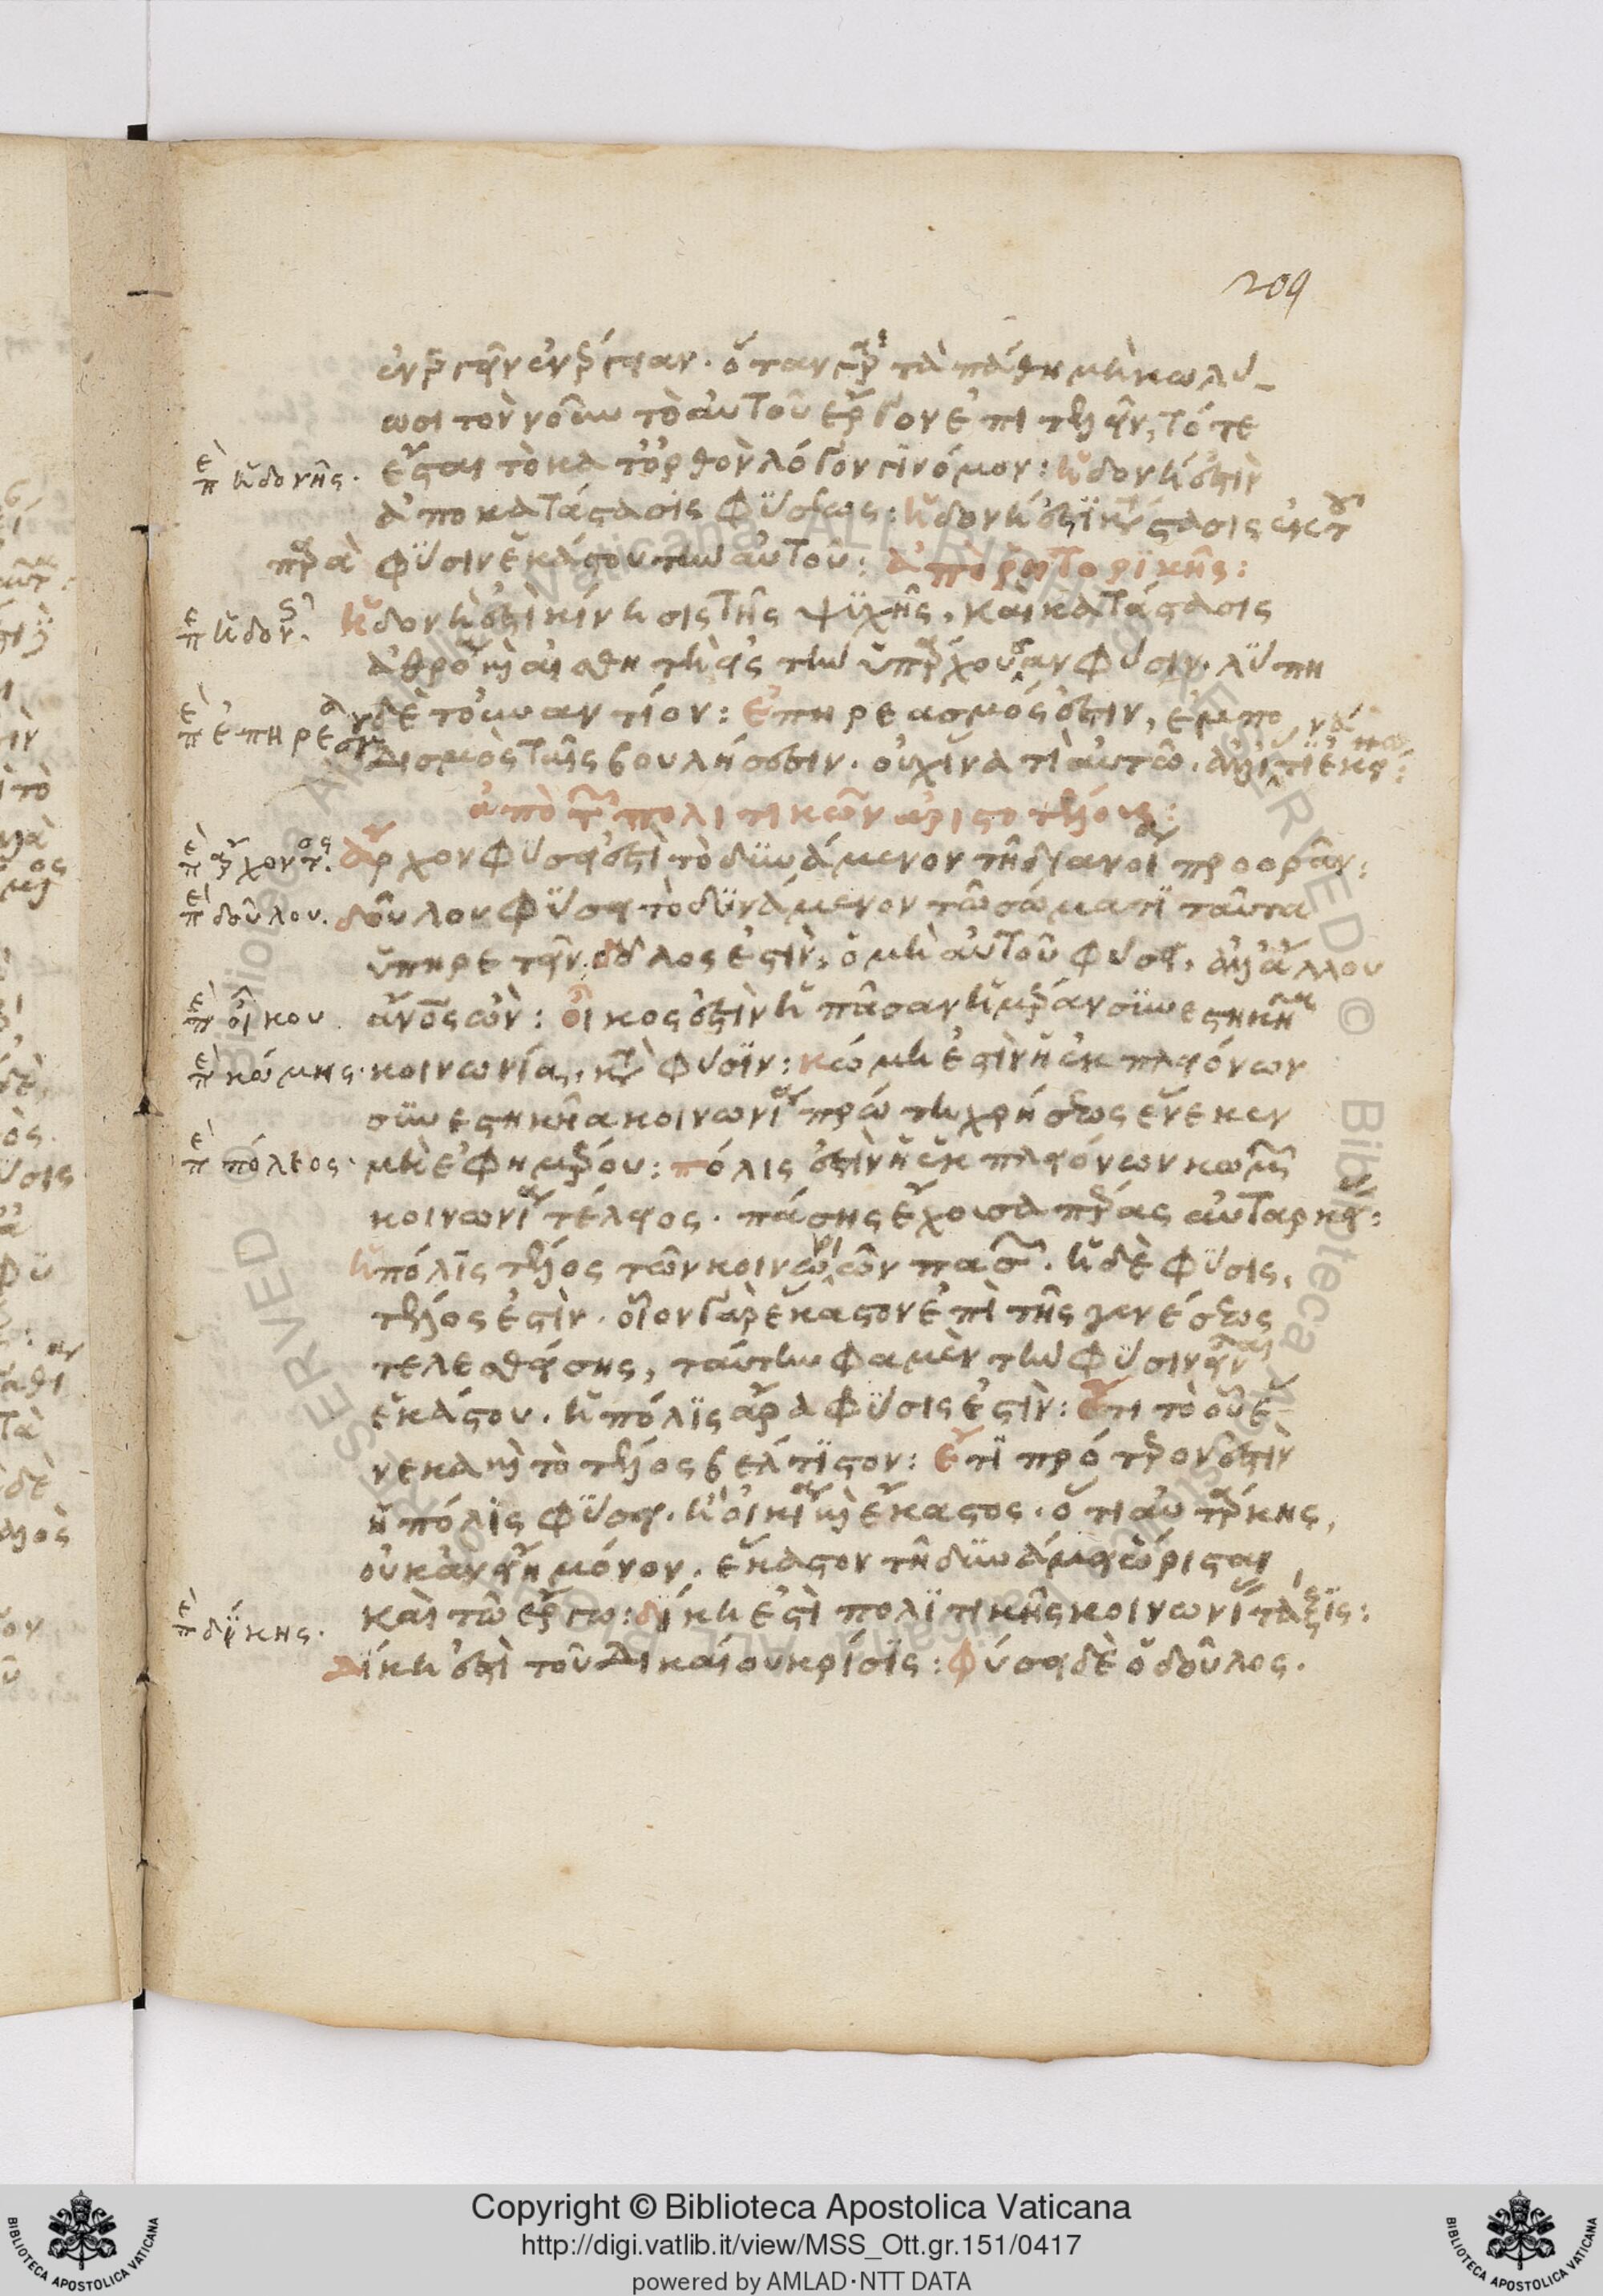 209
ἐνεργεῖν ἐνέργειαν. ὅταν γὰρ τὰ πάθη μὴ κωλύ-
ωσι τὸν νοῦν τὸ αὐτοῦ ἔργον ἐπιτελεῖν, τότε
ἐπὶ ἡδονῆς. ἔσται τὸ κατ' ὀρθὸν λόγον γινόμον: ἡδονή ἐστιν
ἀποκατάστασις φύσεως: ἡδονή ἐστι κατάστασις ἐκ τοῦ
παρὰ φύσιν ἑκάστου τὴν αὐτοῦ: ἀπὸ ῥητορικῆς:
ἐπὶ ἡδον. ἡδονὴ ἐστὶ κίνησις τῆς ψυχῆς, καὶ κατάστασις
ἀθρόα καὶ αἰσθητὴ εἰς τὴν ὑπάρχουσαν φύσιν. λύπη
ἐπὶ ἐπηρεασμ δὲ τοὐναντίον: ἐπηρεασμός ἐστιν, ἐμπο
δισμὸς ταῖς βουλήσεσιν. οὐχ ἵνα τι αὐτῷ. ἀλλ' ἵνα μὴ ἐκείνῳ:
ἀπὸ τῶν πολιτικῶν ἀριστοτέλους:
ἐπὶ ἄρχοντος. ἄρχον φύσει ἐστὶ τὸ δυνάμενον τῆ διανοίᾳ προορᾶν:
ἐπὶ δούλου. δοῦλον φύσει τὸ δυνάμενον τῶ σώματι ταῦτα
ὑπηρετεῖν. δοῦλος ἐστὶν, ὁ μὴ αὐτοῦ φύσει, ἀλλ' ἄλλου
ἐπὶ οἴκου ἄνθρωπος ὢν: οἶκος ἐστὶν ἡ πᾶσαν ἡμέραν συνεστηκυῖα
ἐπὶ κώμης. κοινωνία, κατὰ φύσιν: κώμη ἐστὶν ἡ ἐκ πλειόνων
συνεστηκυῖα κοινωνία πρώτη χρήσεως ἕνεκεν
ἐπὶ πόλεος. μὴ ἐφημέρου: πόλις ἐστὶν ἡ ἐκ πλειόνων κωμῶν
κοινωνία τέλειος. πάσης ἔχουσα πέρας αὐταρκείας:
ἡ πόλις τέλος τῶν κοινωνιῶν πασῶν. ἡ δὲ φύσις,
τέλος ἐστὶν. οἷον γὰρ ἕκαστον ἐπὶ τῆς γενέσεως
τελεσθείσης, ταύτην φαμὲν τὴν φύσιν εἶναι
ἑκάστου. ἡ πόλις ἄρα φύσις ἐστὶν: ἔτι τὸ οὗ ἕ-
νεκα καὶ τὸ τέλος βέλτιστον: ἔτι πρότερον ἐστὶν
ἡ πόλις φύσει. ἢ οἰκία καὶ ἕκαστος. ὅτι αὐτάρκης,
οὐκ ἂν εἴη μόνον. ἕκαστον τῆ δυνάμει ὥρισται
ἐπὶ δίκης. καὶ τῶ ἔργω: δίκη ἐστὶ πολιτικῆς κοινωνίας τάξις:
δίκη ἐστὶ τοῦ δικαίου κρίσις: φύσει δὲ ὁ δοῦλος.
RESERVED © Biblioteca Apostolica Vaticana ALL RIGHTS RESERVED © Biblioteca Apostolica Vaticana ALL RIGHTS
Copyright © Biblioteca Apostolica Vaticana
http://digi.vatlib.it/view/MSS_Ott.gr.151/0417
powered by AMLAD·NTT DATA
BIBLIOTECA APOSTOLICA VATICANA
BIBLIOTECA APOSTOLICA VATICANA